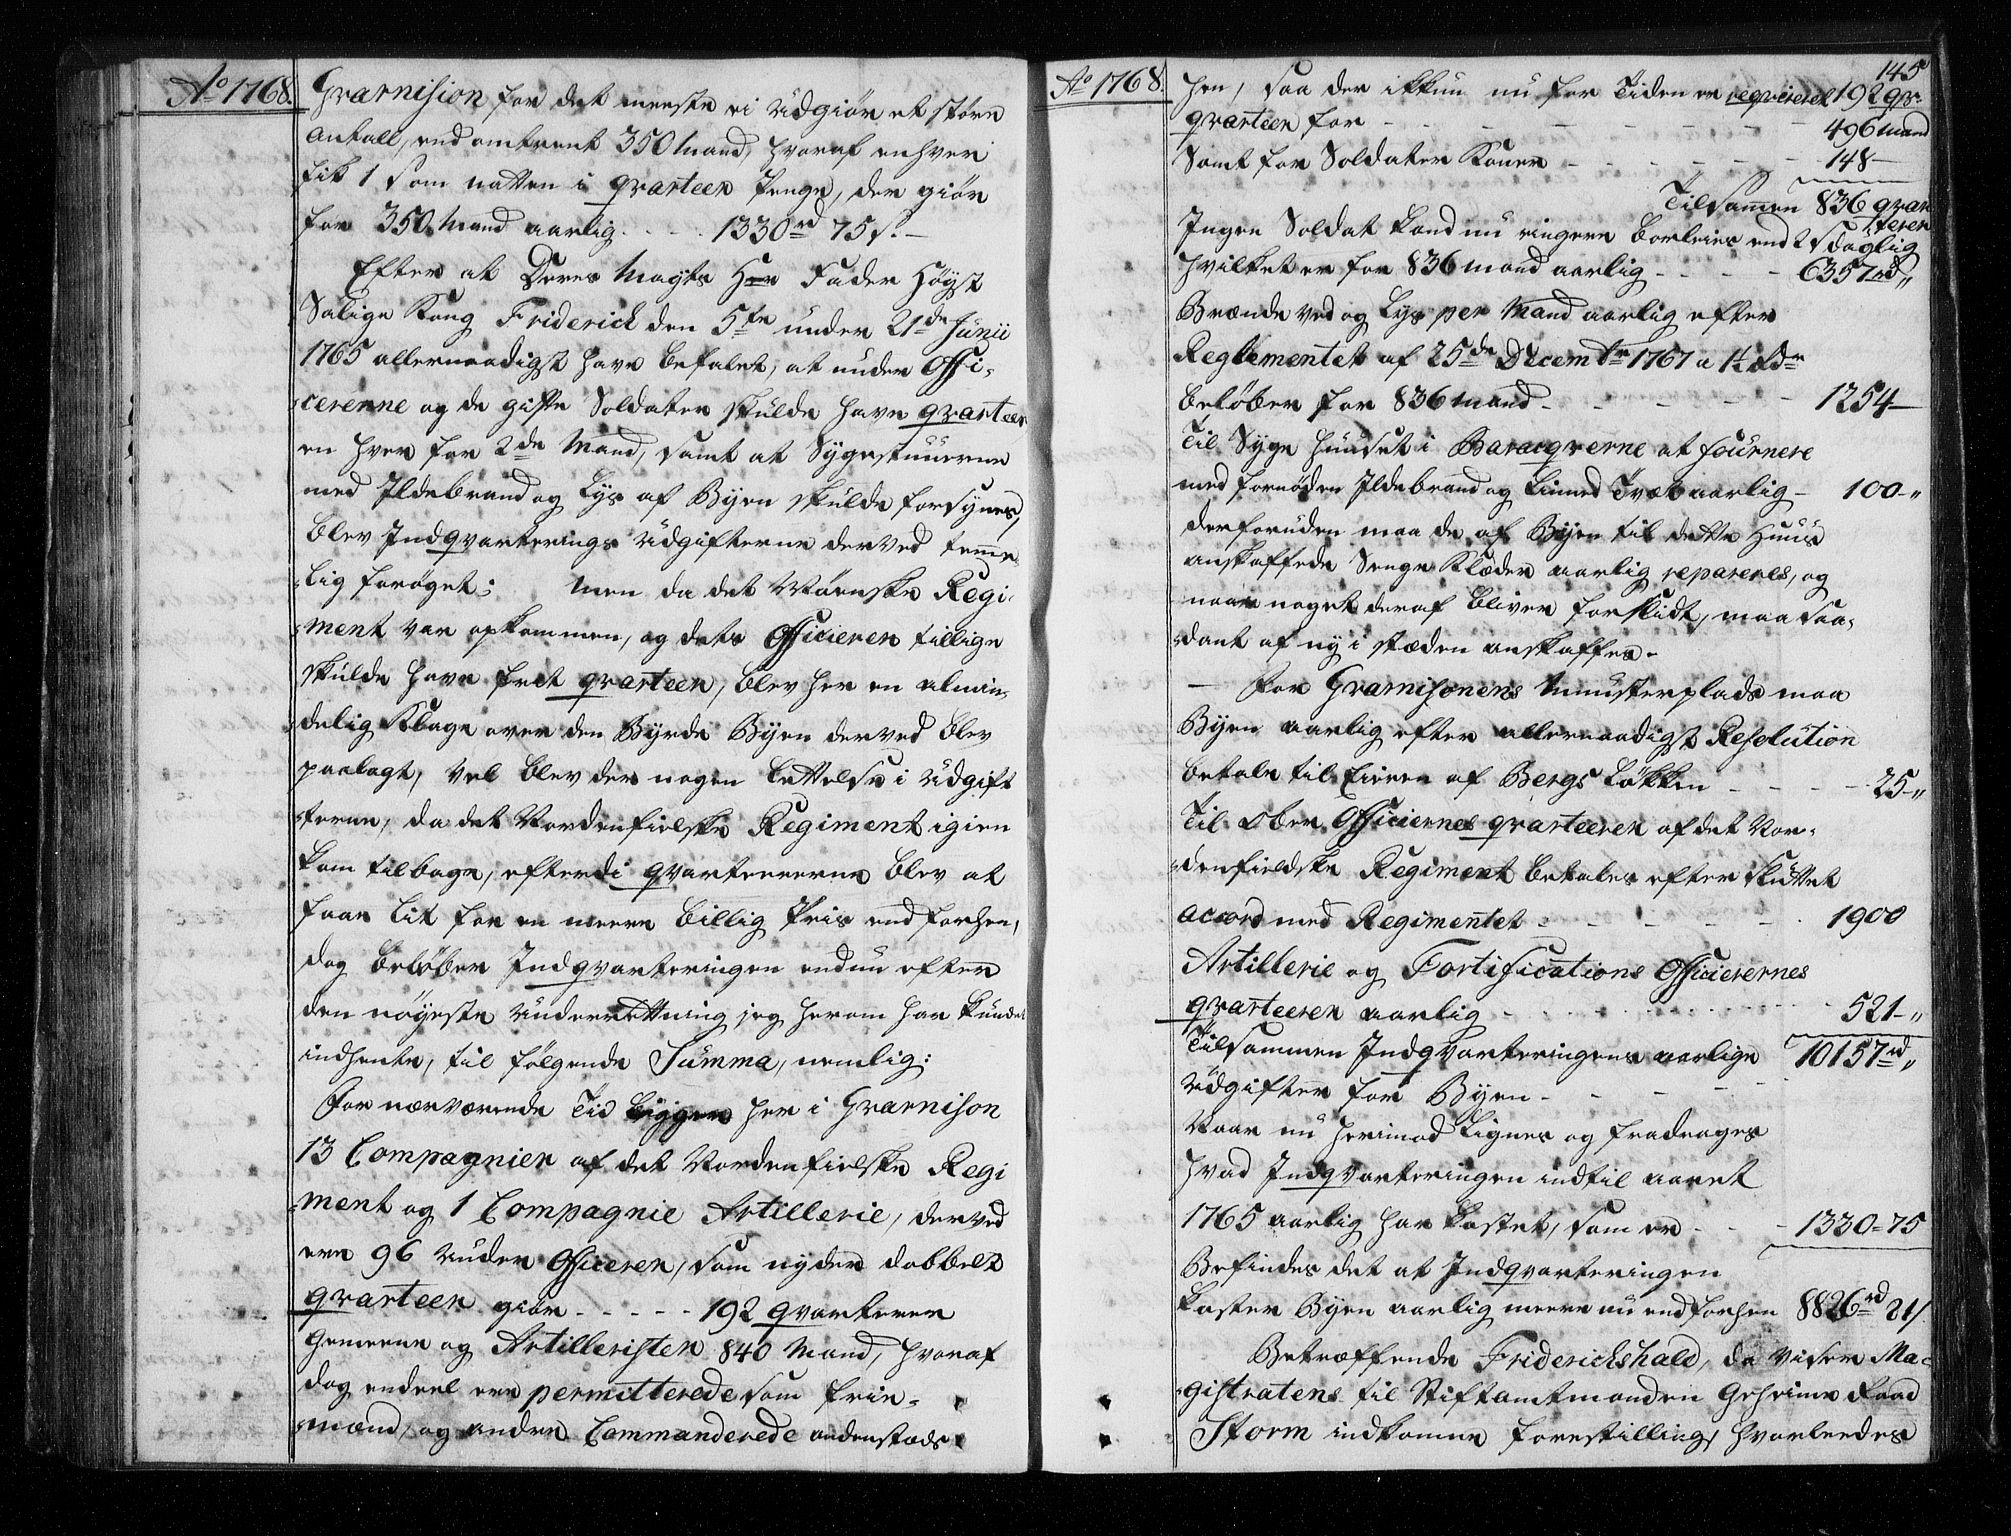 Ao 1768.
Guarnision for det meeste ei udgiør et større
antall, end omtrent 350 Mand, hvoraf enhver
fik 1 s om natten i qvarteer Penge, der giør
for 350 Mand aarlig - - - 1330 rd 75 s. -
Efter at Deres Mayts Her Fader Høyst
Salige Kong Friderich den 5te under 21de Junii
1765 allernaadigst have befalet, at under Offi-
-cererne og de gifte Soldater skulde have qvarteer
en hver for 2de Mand, samt at Sygestuuerne
med Ildebrand og Lys af Byen skulde forsynes,
blev Indqvarterings Udgifterne derved temme-
-lig forøget; men da det Mørenske Regi-
-ment var opkommen, og dets Officierer tillige
skulde have frit qvarteer, blev her en almin-
-delig Klage over den Byrde Byen derved blev
paalagt, vel blev der nogen Lettelse i Udgift
-terne, da det Nordenfielske Regiment igien
kom tilbage, efterdi qvarteererne blev at
faae lit for en meere billig Priis end forhen,
dog beløber Indqvarteringen endnu efter
den nøyeste Underrettning jeg herom har kundet
indhente, til følgende Summa, nemlig:
For nærværende Tid ligger her i Guarnison
13 Compagnier af det Nordenfielske Regi
-ment og 1 Compagnie Artillerie, derved
ere 96 Under Officerer, som nyder dobbelt
qvarteer giør - - - - - 192 qvarterer
Gemeene og Artillerister 840 Mand, hvoraf
dog endeel ere permitterede som frie-
-mænd, og andre Commanderede andenstæds
145
Ao 1768.
hen, saa der ikkun nu for Tiden er reqvireret 192 qr.
qvarteer for - - - 496 mand
Samt for Soldater Koner - - - 148 -
Tilsammen 836 qvar
terer
Ingen Soldat kand nu ringere borleies end 2 s daglig
hvilket er for 836 mand aarlig - - - 6357 rd „
Brænde ved og Lys per Mand aarlig efter
Reglementet af 25de Decembr 1767 a 1½ Rdr
beløber for 836 mand - - - 1254 -
Til Syge Huuset i Baracqverne at fournere
med fornøden Ildebrand og Linned Tvæt aarlig - 100 - „
derforuden maa de af Byen til dette Huus
anskaffede Senge Klæder aarlig repareres, og
naar noget deraf bliver forslidt, maa saa-
-dant af ny i stæden anskaffes.
- For Guarnisonens Munsterplads maa
Byen aarlig efter allernaadigst Resolution
betale til Eieren af Bergs Løkken - - - 25 - „
Til Ober Officiernes qvarteerer af det Nor-
-denfieldske Regiment betales efter sluttet
accord med Regimentet - - - 1900
Artillerie og Fortifications Officierernes
qvarteerer aarlig - - - 521 - „
Tilsammen Indqvarteringens aarlige 10157 rd „
Udgifter for Byen - - -
Naar nu herimod lignes og fradrages
hvad Indqvarteringen indtil aaret
1765 aarlig har kostet, som er - - - 1330 = 75
Befindes det at Indqvarteringen
koster Byen aarlig meere nu end forhen 8826 rd 21 s
Betræffende Friderichshald, da viser Ma-
-gistratens til Stiftamtmanden Geheime Raad
Storm indkomne Forestilling, hvorledes